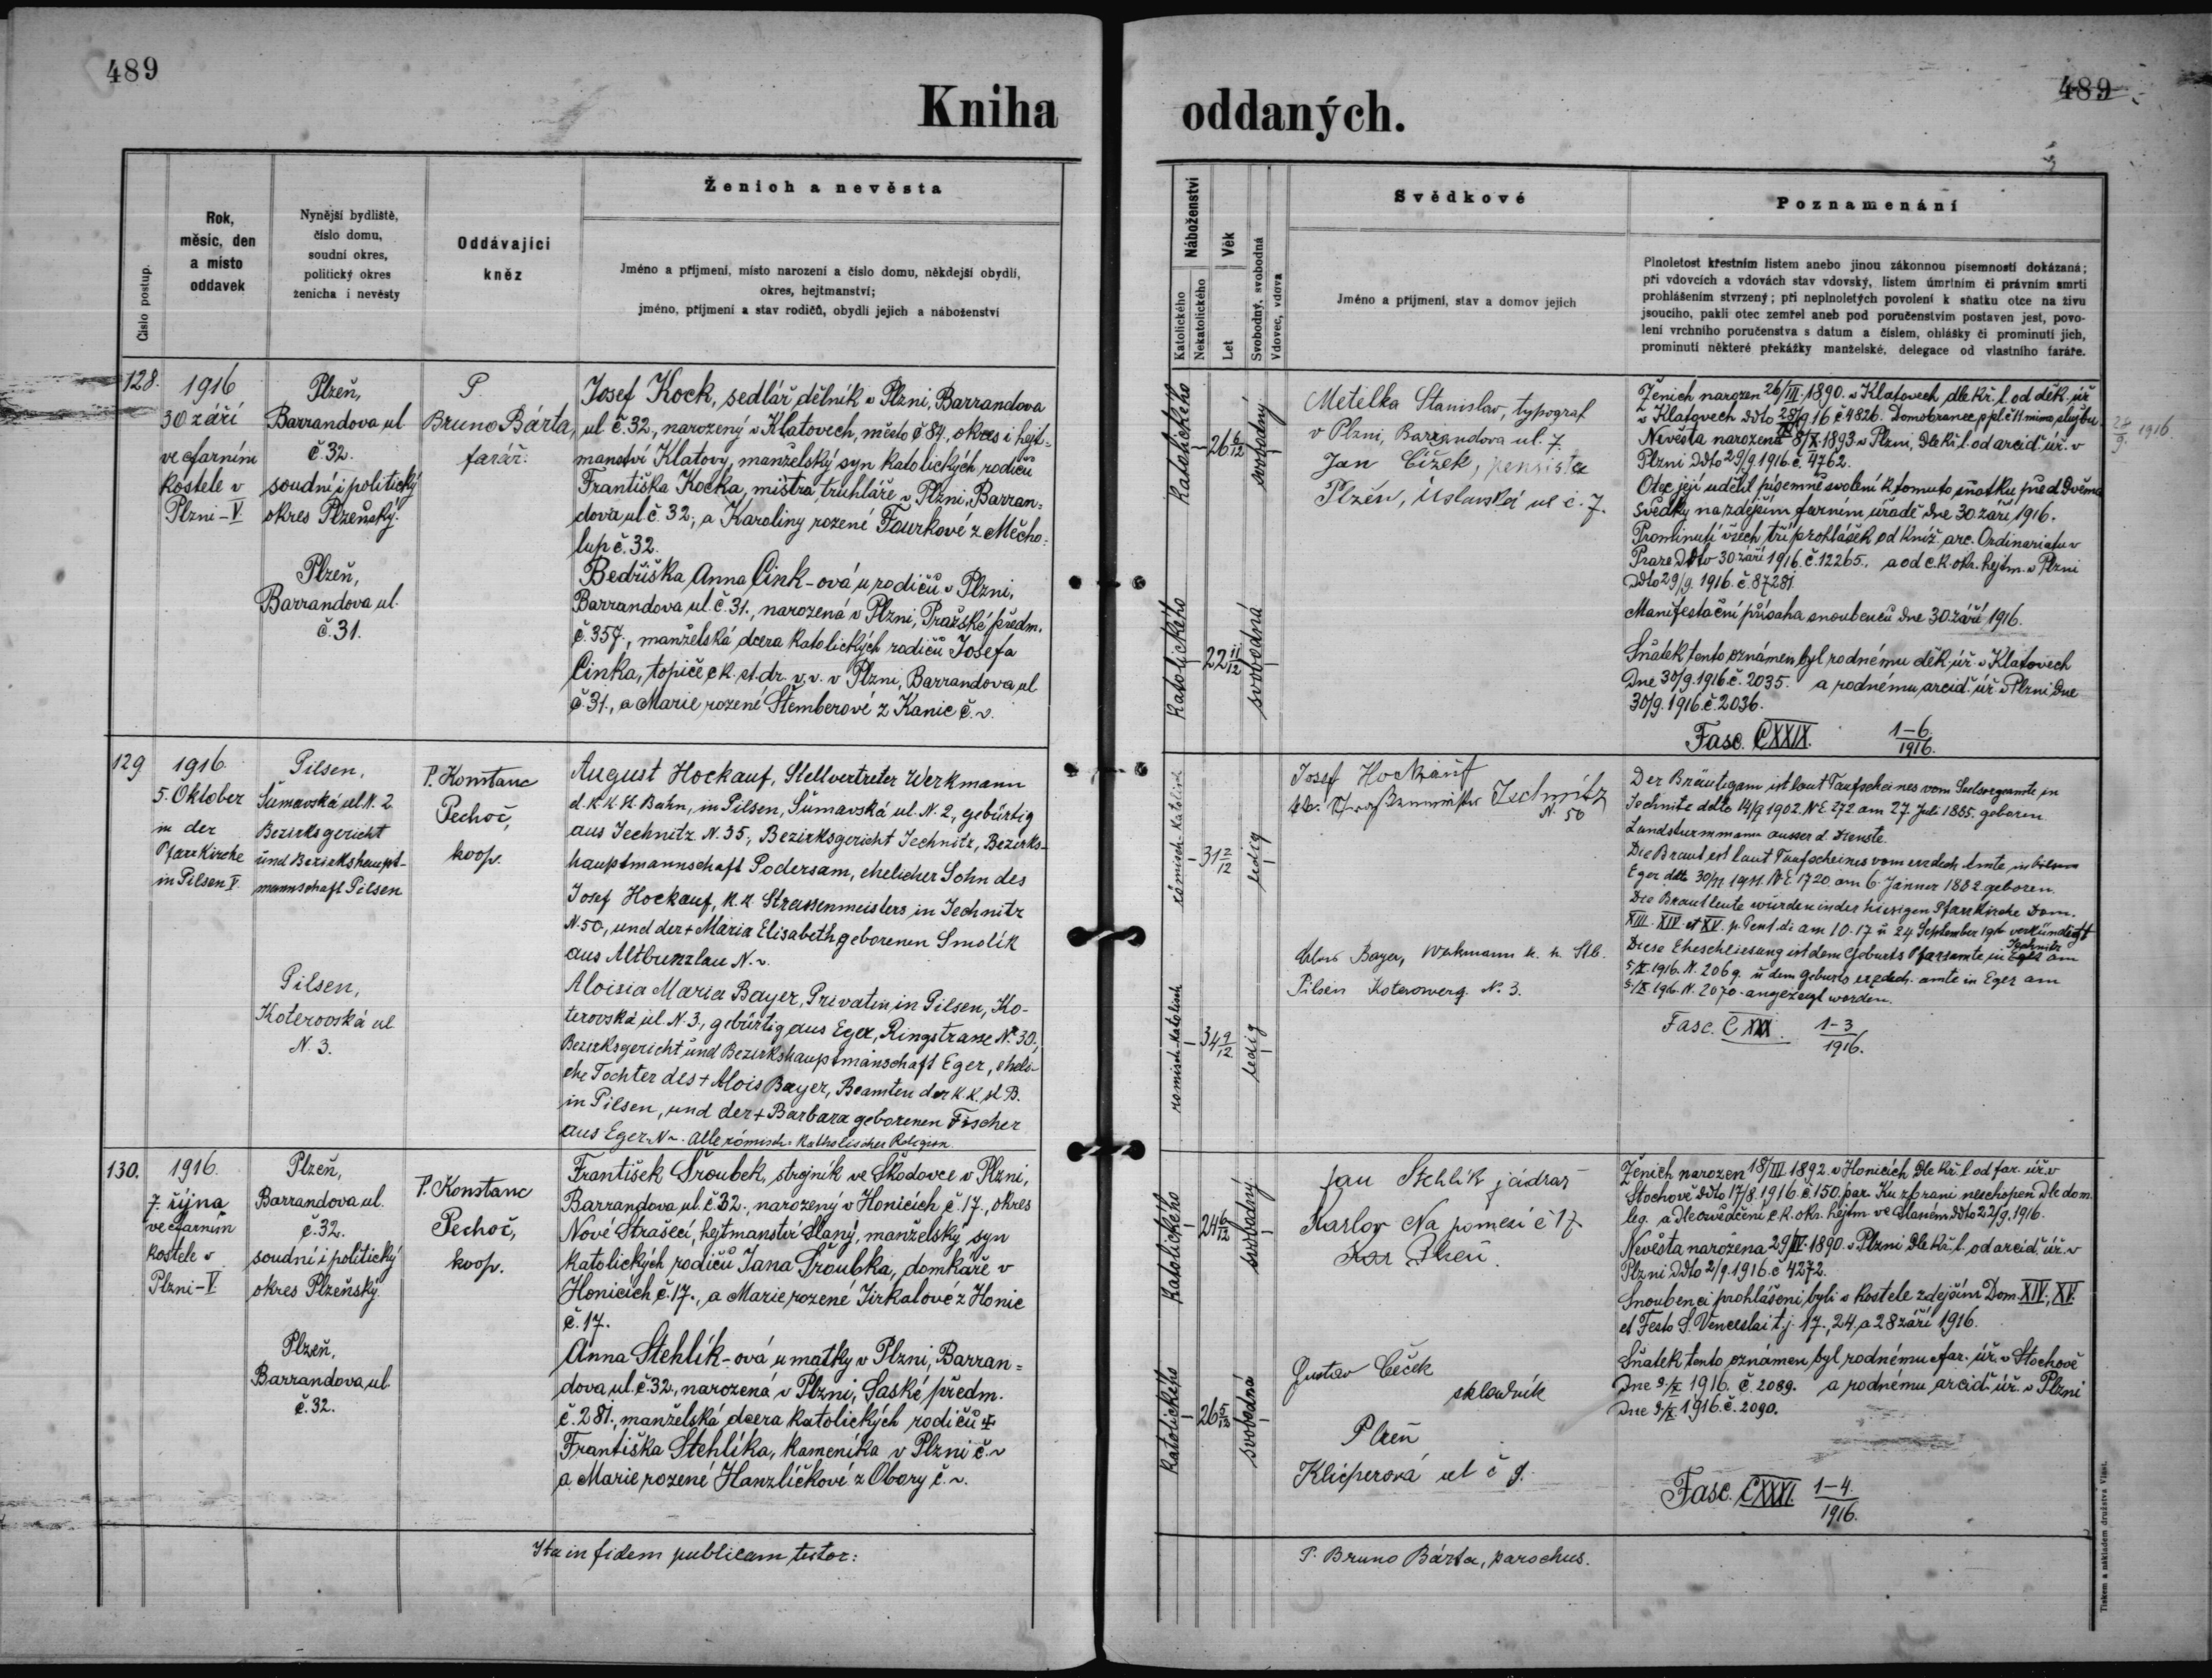 489
489
Kniha oddaných.
Číslo postup.
Rok,
měsíc, den
a místo
oddavek
Nynější bydliště,
číslo domu,
soudní okres,
politický okres
ženicha i nevěsty
Oddávající
kněz
Ženich a nevěsta
Jméno a příjmení, místo narození a číslo domu, někdejší obydlí,
okres, hejtmanství;
jméno, příjmení a stav rodičů, obydlí jejich a náboženství
Náboženství
Katolického
Nekatolického
Věk
Let
Svobodný, svobodná
Vdovec, vdova
Svědkové
Jméno a příjmení, stav a domov jejich
Poznamenání
Plnoletost křestním listem anebo jinou zákonnou písemností dokázaná;
při vdovcích a vdovách stav vdovský, listem úmrtním či právním smrti
prohlášením stvrzený; při neplnoletých povolení k sňatku otce na živu
jsoucího, pakli otec zemřel aneb pod poručenstvím postaven jest, povo-
lení vrchního poručenstva s datum a číslem, ohlášky či prominutí jich,
prominutí některé překážky manželské, delegace od vlastního faráře.
128.
1916
30 září
ve farním
kostele v
Plzni-V.
Plzeň,
Barrandova ul
č.32.
soudní i politický
okres Plzeňský.
Plzeň,
Barrandova ul.
č.31.
P.
Bruno Bárta,
farář.
Josef Kock, sedlář dělník v Plzni, Barrandova
ul č.32., narozený v Klatovech, město č 84., okres i hejt-
manství Klatovy, manželský syn katolických rodičů
Františka Kocka, mistra truhláře v Plzni, Barran-
dova ul č. 32., a Karoliny rozené Faurkové z Měcho-
lup č.32.
Bedřiška Anna Cink-ová u rodičů v Plzni,
Barrandova ul. č.31., narozená v Plzni, Pražské předm.
č.357., manželská dcera katolických rodičů Josefa
Cinka, topiče c.k. st. dr. v.v. v Plzni, Barrandova ul
č.31., a Marie rozené Štemberové z Kanic č. v.
Katolického
26 6/12
svobodný
Katolického
22 11/12
svobodná
Metelka Stanislav, typograf
v Plzni, Barrandova ul. 7.
Jan Čížek, pensista
Plzeň, Úslavská ul č. 7.
Ženich narozen 26/III. 1890. v Klatovech dle kř. l. od děk. úř
v Klatovech ddto 28/9 16 č 4826. Domobranec p pl. č 11 mimo službu.
28/9. 1916.
Nevěsta narozena 8/X. 1893 v Plzni, dle kř. l. od arcid. úř. v
Plzni ddto 29/9. 1916. č. 4762.
Otec její udělil písemně svolení k tomuto sňatku před dvěma
svědky na zdejším farním úřadě dne 30. září 1916.
Prominutí všech tří prohlášek od kníž. arc. Ordinariatu v
Praze ddto 30 září 1916. č. 12265. a od c.k. okr. hejtm. v Plzni
ddto 29/9. 1916. č. 87281.
Manifestační přísaha snoubenců dne 30. září 1916.
Sňatek tento oznámen byl rodnému děk. úř. v Klatovech
dne 30/9. 1916. č. 2035. a rodnému arcid. úř. v Plzni dne
30/9. 1916. č. 2036.
Fasc. CXXIX. 1-6./1916.
129
1916
5. Oktober
in der
Pfarrkirche
in Pilsen V.
Pilsen,
Šumavská ul. N. 2
Bezirksgericht
und Bezirkshaupt-
mannschaft Pilsen
Pilsen,
Koterovská ul
N. 3.
P. Konstanc
Pechoč,
koop.
August Hockauf, Stellvertreter Werkmann
d. k. k. St. Bahn, in Pilsen, Šumavská ul. N. 2, gebürtig
aus Jechnitz N. 35., Bezirksgericht Jechnitz, Bezirks-
hauptmannschaft Podersam, ehelicher Sohn des
Josef Hockauf, k. k. Strassenmeisters in Jechnitz
N. 50, und der + Maria Elisabeth geborenen Smolík
aus Altbunzlau N. v.
Aloisia Maria Bayer, Privatin in Pilsen, Ko-
terovská ul. N. 3., gebürtig aus Eger, Ringstrasse N. 30,
Bezirksgericht und Bezirkshauptmanschaft Eger, eheli-
che Tochter des + Alois Bayer, Beamten der k. k. st B.
in Pilsen, und der + Barbara geborenen Fischer
aus Eger N v. Alle römisch-katholischer Religion.
römisch-katolisch
31 2/12
ledig
römisch-katolisch
34 9/12
ledig
Josef Hockauf
Jechnitz
N. 50
Alois Bayer, Werkmann k. k. Stb.
Pilsen Koterowerg. N. 3.
Der Bräutigam ist laut Taufscheines vom Seelsorgeamte in
Jechnitz ddto 14/9 1902. N.E. 272 am 27. Juli 1885. geboren
Landsturmmann ausser d. Dienste.
Die Braut ist laut Taufscheines vom erzdech. Amte in
Eger ddto 30/11 1911. N.E. 1720. am 6. Jänner 1882. geboren.
Die Brautleute wurden in der hiesigen Pfarrkirche Dom.
XIII. XIV. et XV. p. Pent. di. am 10. 17 u. 24 September 1916 verkündigt
Diese Eheschliesung ist dem Geburts Pfarramte in Jechnitz am
5/X. 1916. N. 2069. u dem Geburts erzdech. amte in Eger am
5./X. 1916. N. 2070. angezeigt worden.
Fasc. CXXX. 1-3/1916.
130.
1916.
7. října
ve farním
kostele v
Plzni-V.
Plzeň,
Barrandova ul.
č.32.
soudní i politický
okres Plzeňský.
Plzeň,
Barrandova ul.
č.32.
P. Konstanc
Pechoč,
koop.
František Šroubek, strojník ve Škodovce v Plzni,
Barrandova ul. č.32., narozený v Honicích č. 17., okres
Nové Strašecí, hejtmanství Slaný, manželský syn
katolických rodičů Jana Šroubka, domkáře v
Honicích č.17., a Marie rozené Jirkalové z Honic
č.17.
Anna Stehlík-ová u matky v Plzni, Barran-
dova ul. č.32., narozená v Plzni, Saské předm.
č. 281., manželská dcera katolických rodičů +
Františka Stehlíka, kameníka v Plzni č. v
a Marie rozené Hanzlíčkové z Obory č. v.
Katolického
24 6/12
svobodný
Katolického
26 5/12
svobodná
Jan Stehlík jádrař
Karlov Na pomezí č 17
Plzeň.
Gustav Čeček
skladník
Plzeň
Klicperová ul č 9.
Ženich narozen 18/III 1892. v Honicích dle kř. l. od far. úř. v
Stochově ddto 17/8. 1916. č. 150. par. Ku zbrani neschopen dle dom.
leg. a dle osvědčení c.k. okr. hejtm. ve Slaném ddto 22/9. 1916.
Nevěsta narozena 29/IV. 1890. v Plzni dle kř. l. od arcid. úř. v
Plzni ddto 2/9. 1916. č 4272.
Snoubenci prohlášeni byli v kostele zdejším Dom. XIV., XV.
et Festo S. Venceslai t.j. 17., 24. a 28 září 1916.
Sňatek tento oznámen byl rodnému far. úř. v Stochově
dne 9/X. 1916. č. 2089. a rodnému arcid. úř. v Plzni
dne 9/X. 1916. č. 2090.
Fasc. CXXXI. 1-4./1916.
Ita in fidem publicam testor:
P. Bruno Bárta, parochus.
Tiskem a nákladem družstva Vlast.